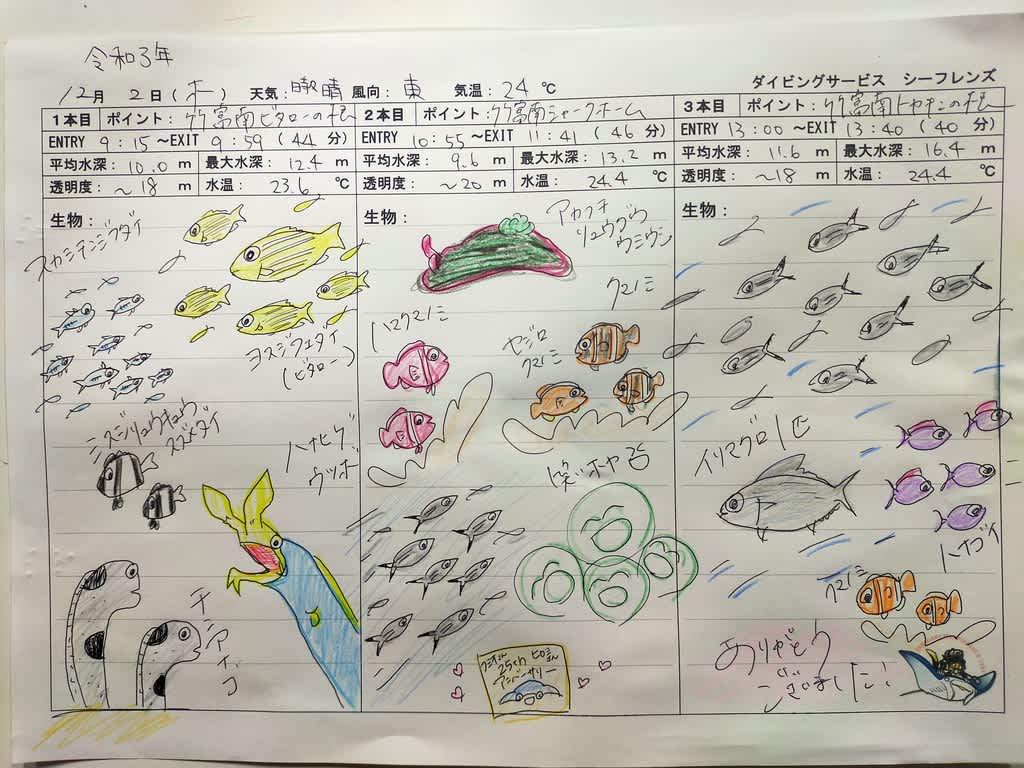 令和3年
12月 2日(木) 天気: 曇晴 風向: 東 気温: 24 ℃
ダイビングサービス シーフレンズ
1本目 ポイント: 竹富南ビタローの根
ENTRY 9:15 ~EXIT 9:59 (44 分)
平均水深: 10.0 m 最大水深: 12.4 m
透明度: ~18 m 水温: 23.6 ℃
生物:
スカシテンジクダイ
ヨスジフエダイ
(ビタロー)
ミスジリュウキュウ
スズメダイ
ハナヒゲ
ウツボ
チンアナゴ
2本目 ポイント: 竹富南シャークホーム
ENTRY 10:55 ~EXIT 11:41 (46 分)
平均水深: 9.6 m 最大水深: 13.2 m
透明度: ~20 m 水温: 24.4 ℃
生物:
アカフチ
リュウグウ
ウミウシ
クマノミ
ハマクマノミ
セジロ
クマノミ
25th
アニバーサリー
3本目 ポイント: 竹富南トカキンの根
ENTRY 13:00 ~EXIT 13:40 (40 分)
平均水深: 11.6 m 最大水深: 16.4 m
透明度: ~18 m 水温: 24.4 ℃
生物:
イソマグロ1匹
ハナゴイ
クマノミ
ありがとう
ございました!